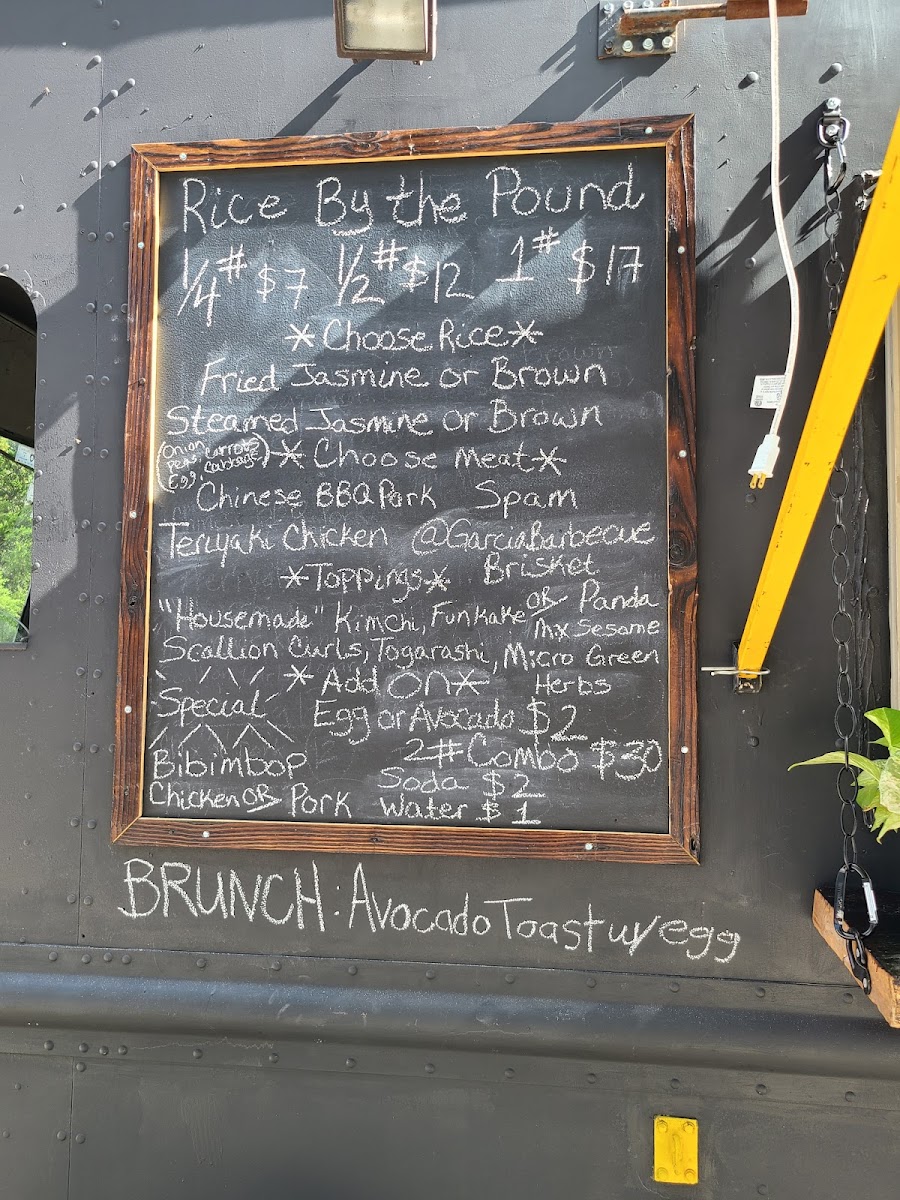 Rice By the Pound
1/4# $7 1/2# $12 1# $17
*Choose Rice*
Fried Jasmine or Brown
Steamed Jasmine or Brown
(Onion, Carrots
Peas, Cabbage
Egg)
*Choose Meat*
Chinese BBQ Pork Spam
Teriyaki Chicken @GarciaBarbecue
Brisket
*Toppings*
"Housemade" Kimchi, Funkake OR Panda
Mx Sesame
Scallion Curls, Togarashi, Micro Green
Herbs
*Add On*
Special
Egg or Avocado $2
Bibimbop
2# Combo $30
Chicken OR Pork
Soda $2
Water $1
BRUNCH: Avocado Toast w/ egg